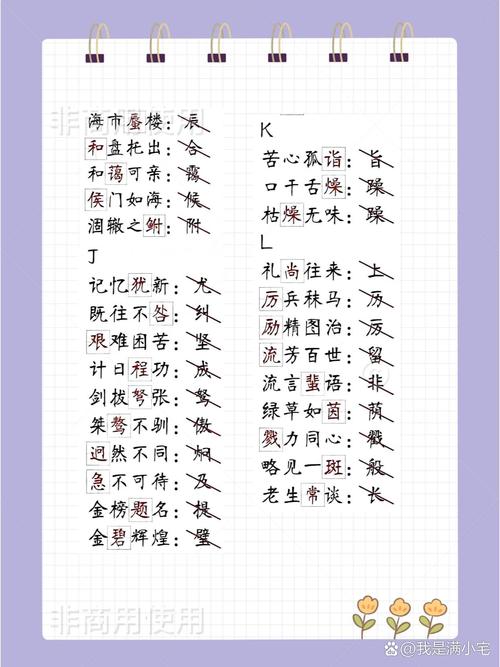 非商用使用
海市蜃楼：辰
和盘托出：合
和蔼可亲：霭
侯门如海：候
涸辙之鲋：附
J
记忆犹新：尤
既往不咎：纠
艰难困苦：坚
计日程功：成
剑拔弩张：驽
桀骜不驯：傲
迥然不同：炯
急不可待：及
金榜题名：提
金碧辉煌：璧
K
苦心孤诣：旨
口干舌燥：躁
枯燥无味：躁
L
礼尚往来：上
厉兵秣马：历
励精图治：厉
流芳百世：留
流言蜚语：非
绿草如茵：荫
戮力同心：戳
略见一斑：般
老生常谈：长
非商用使用
@我是满小宅